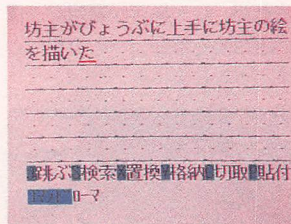 坊主がびょうぶに上手に坊主の絵
を描いた
跳ぶ 検索 置換 格納 切取 貼付
ローマ